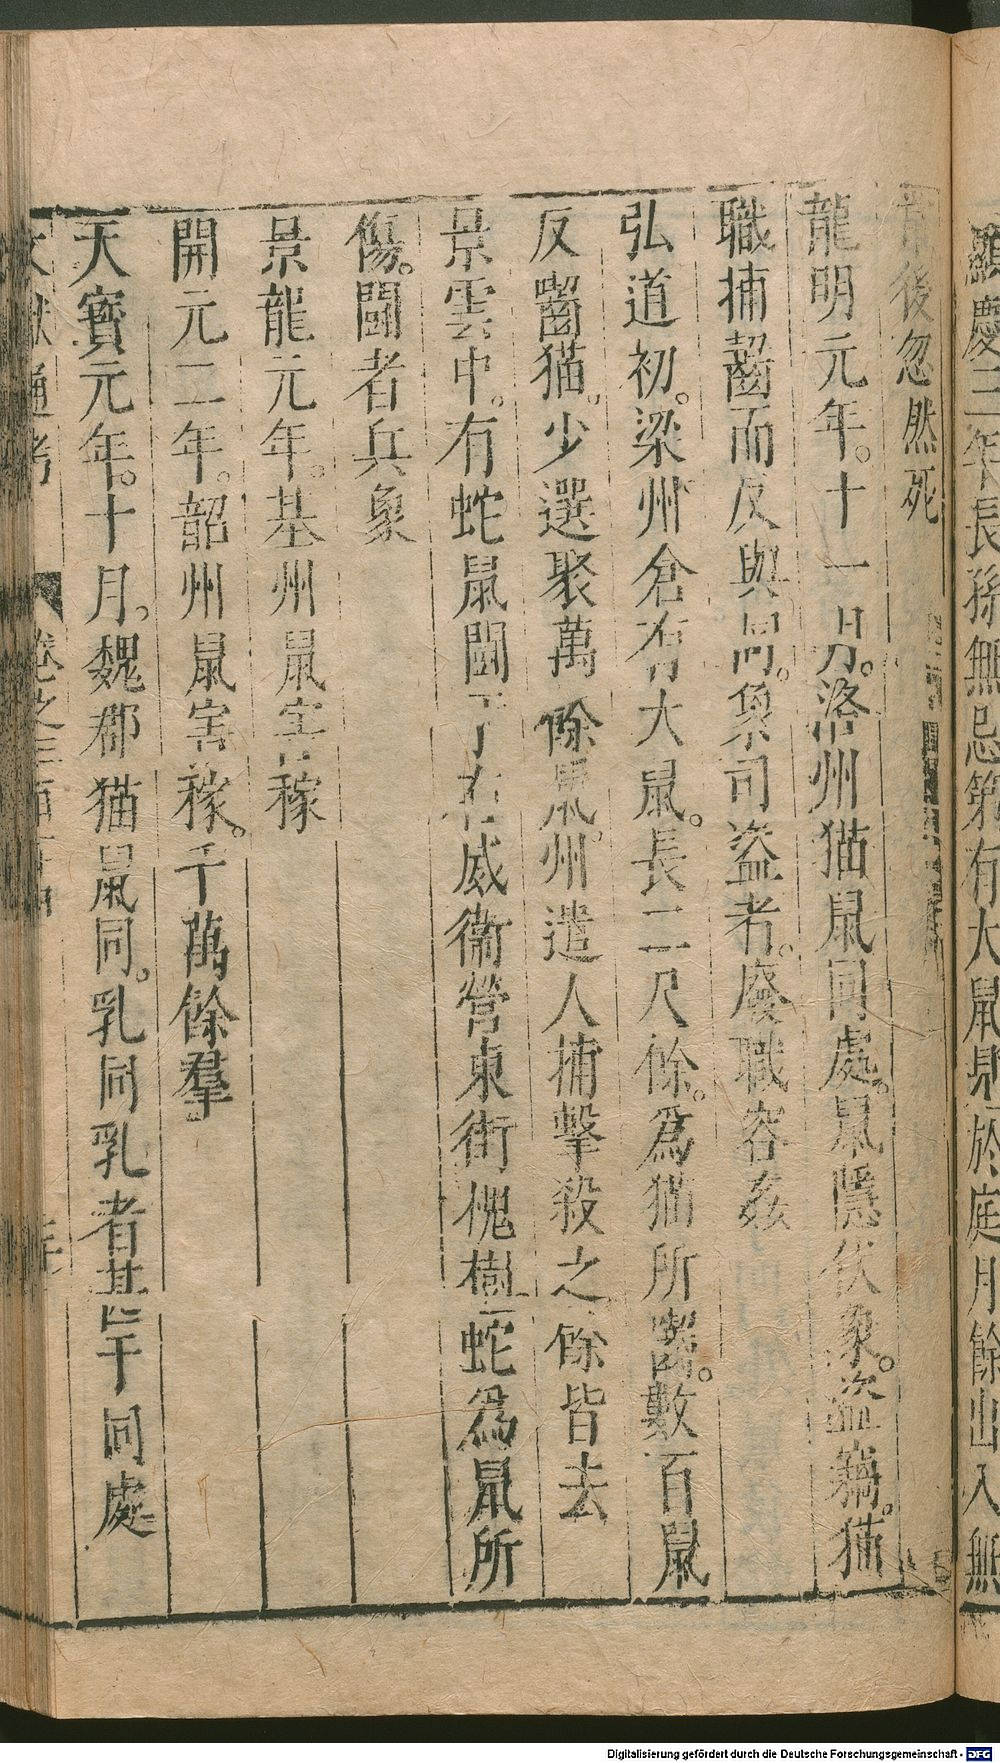 顯慶三年長孫無忌第有大鼠見於庭月餘出入無
常後忽然死
龍朔元年。十一月。洛州猫鼠同處。鼠隱伏象。盜竊。猫
職捕齧而反與同。象司盜者。廢職容姦
弘道初。梁州倉有大鼠。長二尺餘。爲猫所齧。數百鼠
反齧猫。少選聚萬餘鼠。州遣人捕擊殺之餘皆去
景雲中。有蛇鼠鬪于右威衞營東街槐樹蛇爲鼠所
傷。鬪者兵象
景龍元年。基州鼠害稼
開元二年。韶州鼠害稼。千萬餘羣
天寶元年。十月。魏郡猫鼠同。乳同乳者甚于同處
文獻通考 卷之三百十四
Digitalisierung gefördert durch die Deutsche Forschungsgemeinschaft - DFG